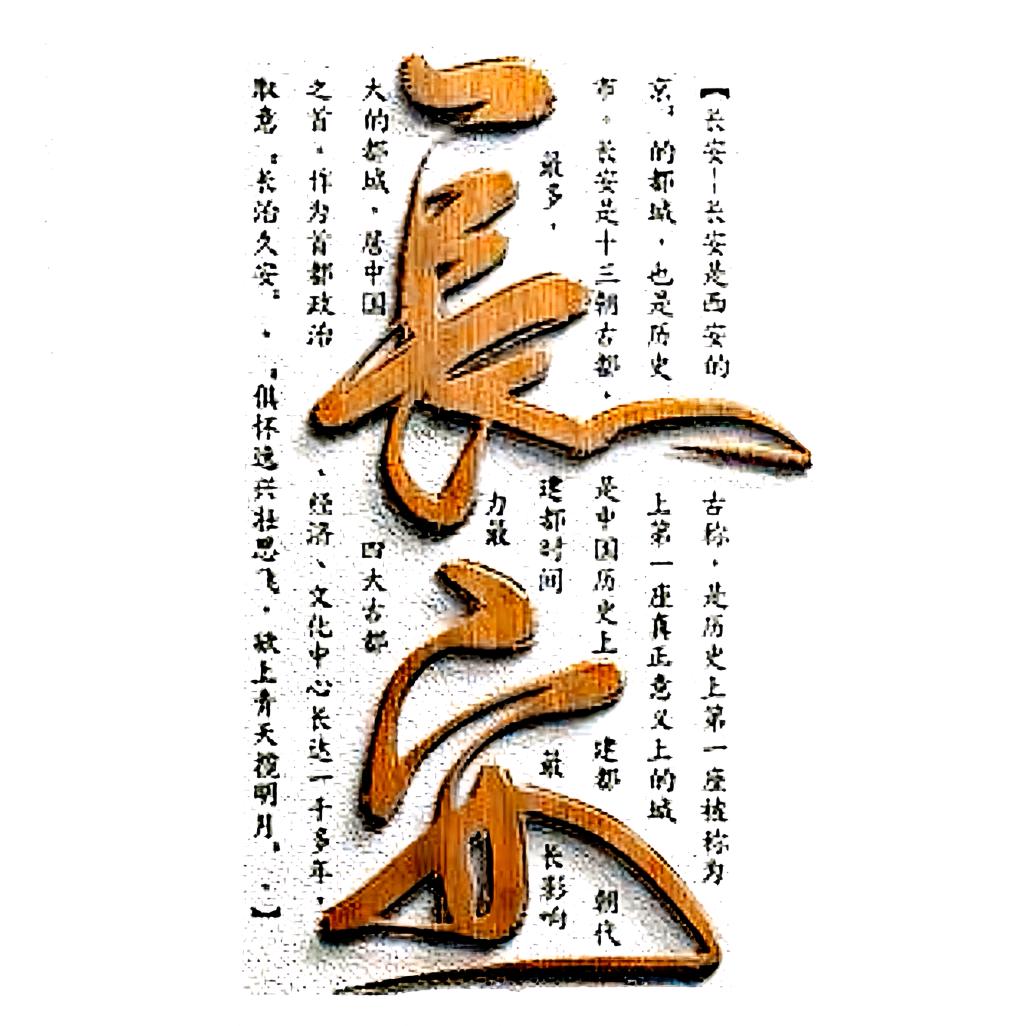 長安
【长安—长安是西安的古称,是历史上第一座被称为
京”的都城,也是历史上第一座真正意义上的城
市。长安是十三朝古都,是中国历史上建都朝代
最多,建都时间最长影响
力最
大的都城,居中国四大古都
之首。作为首都政治、经济、文化中心长达一千多年,
取意“长治久安”。“俱怀逸兴壮思飞,欲上青天揽明月”。】